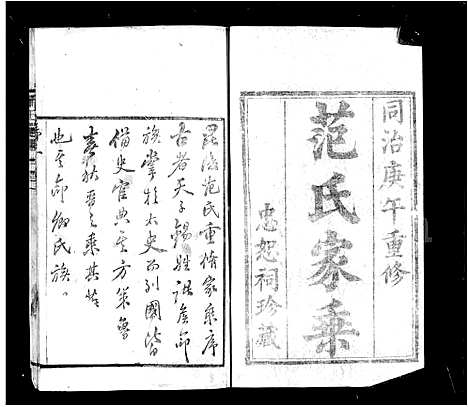 同治庚午重修
范氏家乘
忠恕祠珍藏
毘陵范氏重脩家乘序
古者天子錫姓諸侯命
族掌於太史而列國皆
備史官典其方策魯
春秋晉之乘其
也其命氏族